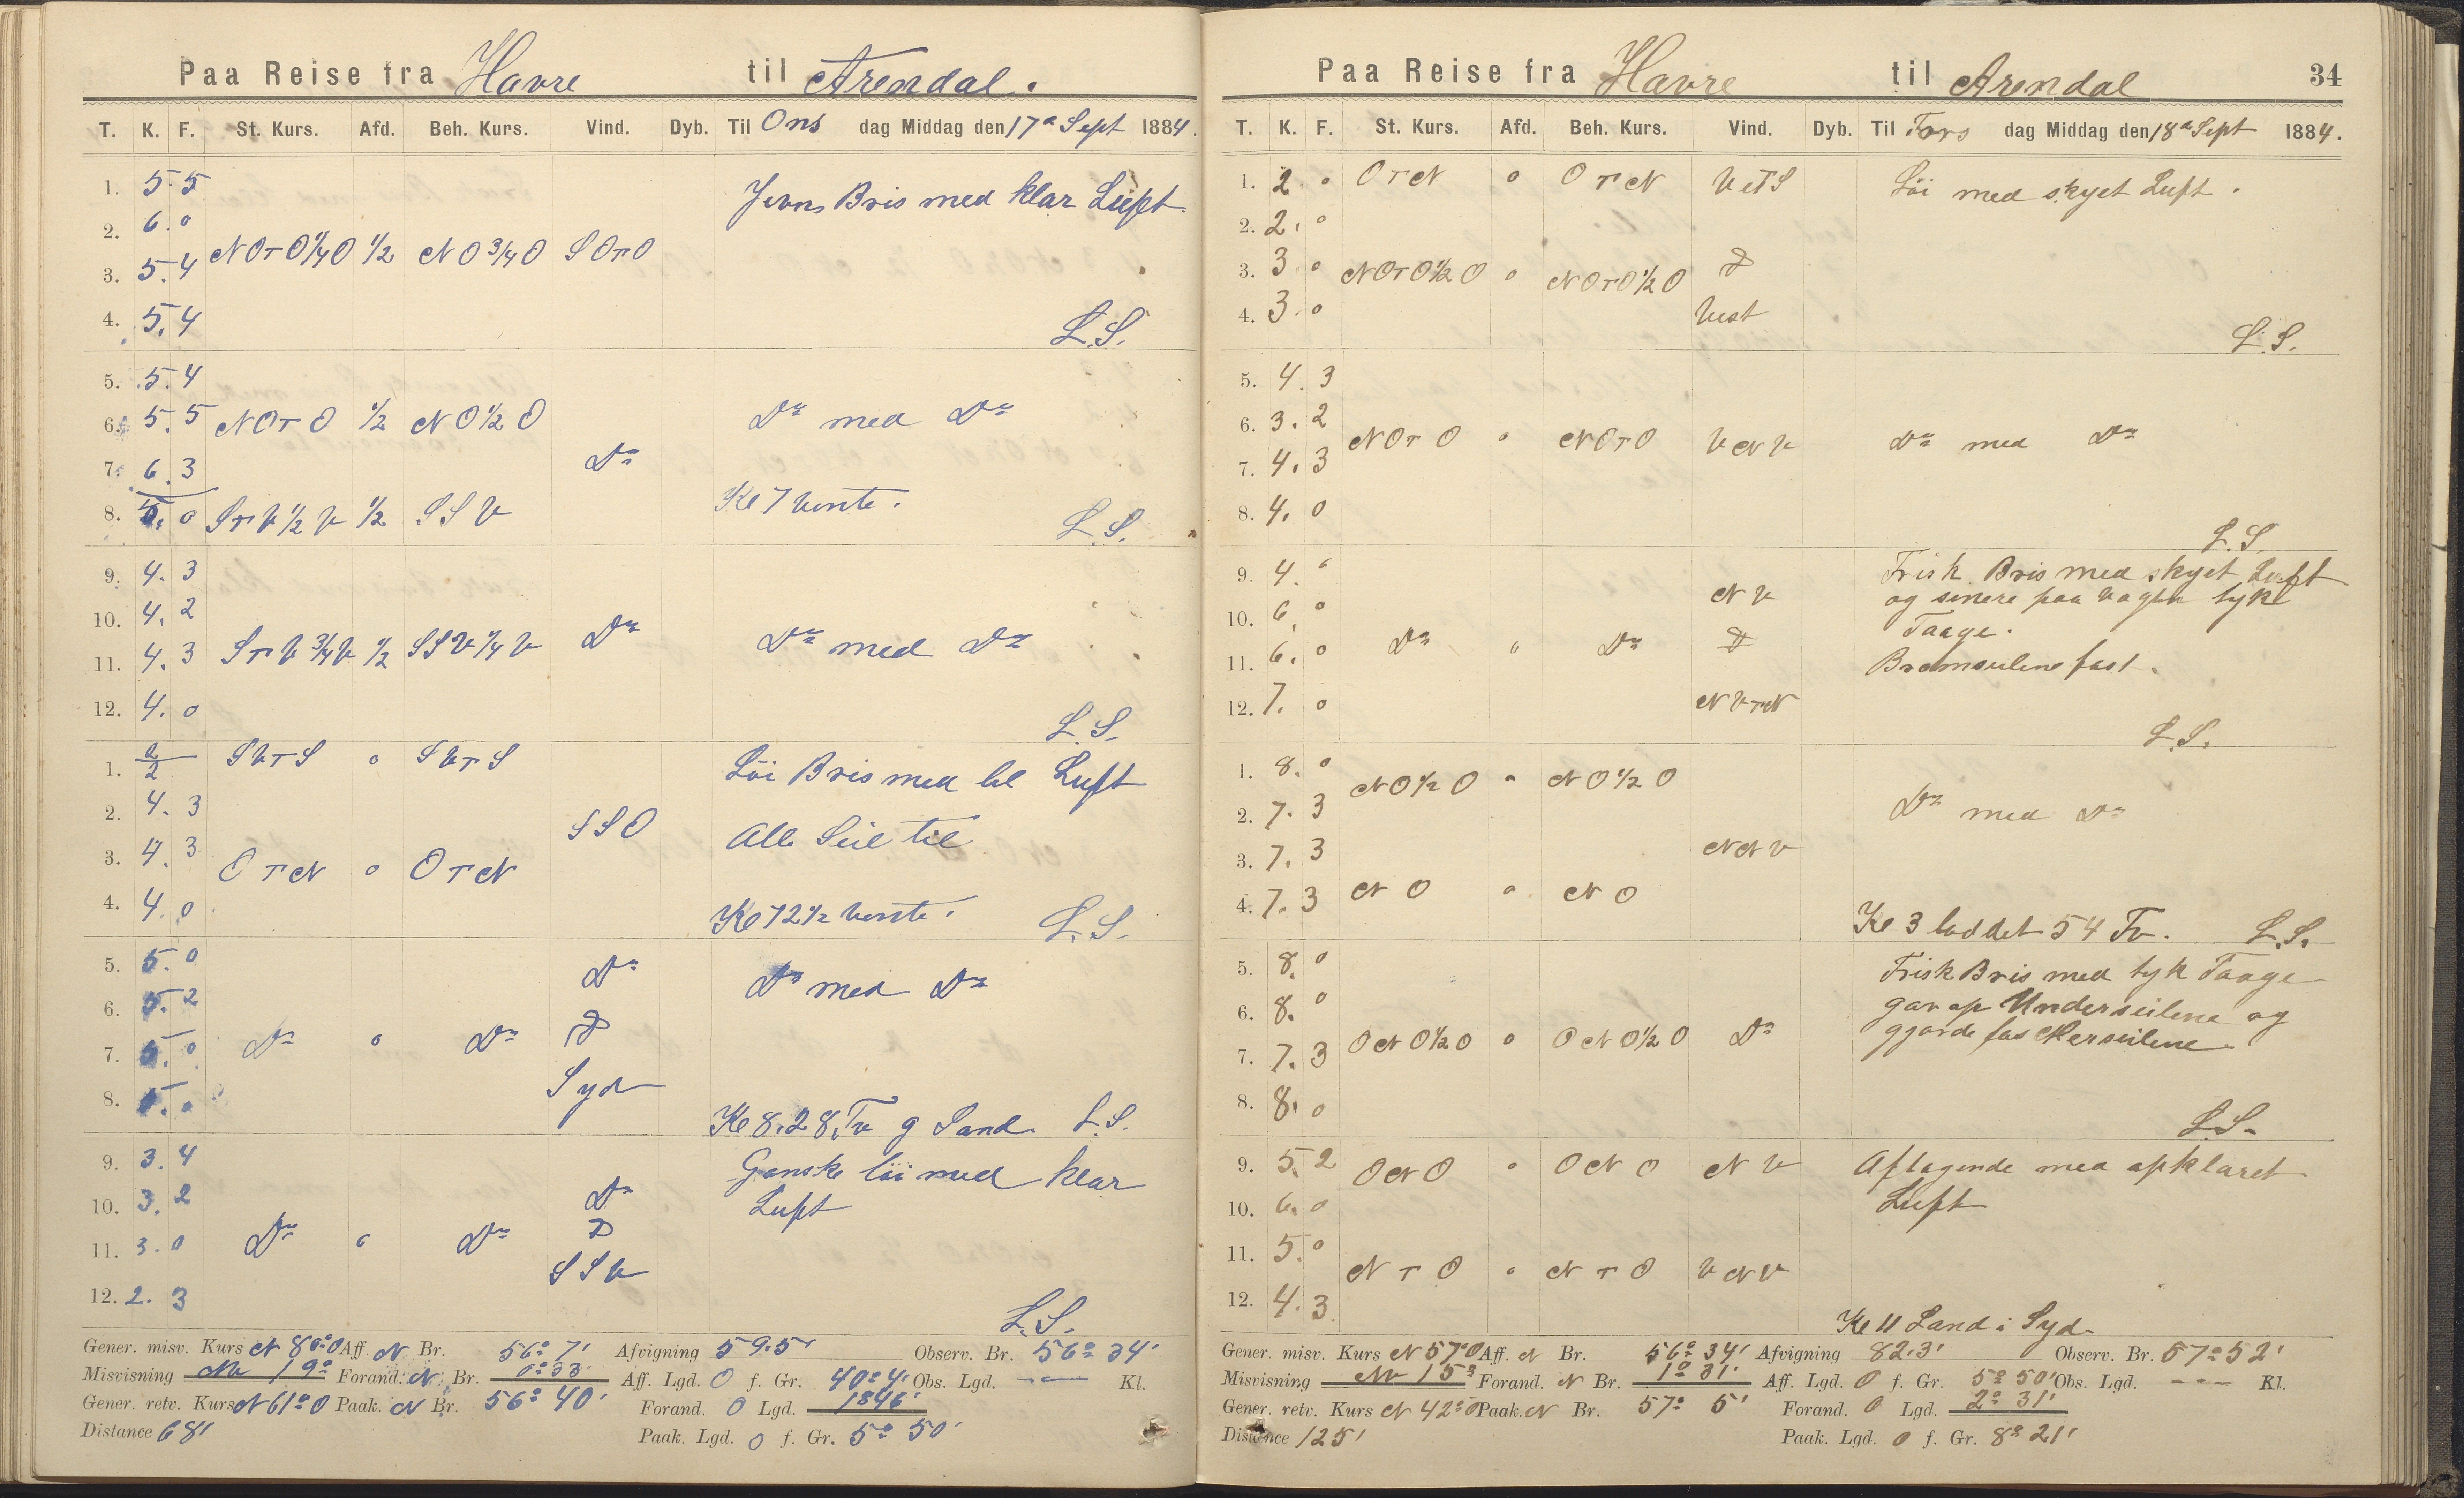 Paa Reise fra Havre til Arendal.
T. K. F. St. Kurs. Afd. Beh. Kurs. Vind. Dyb. Til Ons dag Middag den 17de Sept 1884.
1. 5.5 Jevn Bris med klar Luft.
2. 6.0
NOTO¼O ½ NO¾O SOTO
3. 5.4
4. 5.4 L.S.
5. 5.4
6. 5.5 NOTO ½ NO½O Do med Do
7. 6.3 Do
8. 5.0 STV½V ½ SSV Kl 7 vente. L.S.
9. 4.3
10. 4.2
11. 4.3 STV¾V ½ SSV¼V Do Do med Do
12. 4.0 L.S.
1. 2 SVTS 0 SVTS Löi Bris med Luft
2. 4.3 SSO Alle Seil til
3. 4.3 OTN 0 OTN
4. 4.0 Kl 12½ vente. L.S.
5. 5.0 Do Do med Do
6. 5.2
7. 5.0 Do 0 Do
Syd
8. 5.0 Kl 8. 28 Fv g Sand. L.S.
9. 3.4 Ganske löi med klar
10. 3.2 Do Luft
11. 3.0 Do 0 Do
SSV
12. 2.3 L.S.
Gener. misv. Kurs N 80°O Aff. N Br. 56° 7' Afvigning 59.5 Observ. Br. 56° 34'
Misvisning NV 19° Forand. N Br. 0° 33 Aff. Lgd. O f. Gr. 4° 4' Obs. Lgd. --- Kl.
Gener. retv. Kurs N 61° O Paak. N Br. 56° 40' Forand. O Lgd. 1° 46'
Distance 68' Paak. Lgd. O f. Gr. 5° 50'
Paa Reise fra Havre til Arendal 34
T. K. F. St. Kurs. Afd. Beh. Kurs. Vind. Dyb. Til Tors dag Middag den 18de Sept 1884.
1. 2.0 OTN 0 OTN VTS Löi med skyet Luft.
2. 2.0
3. 3.0 NOTO½O 0 NOTO½O
4. 3.0 Vest L.S.
5. 4.3
6. 3.2
NOTO 0 NOTO VNV Do med Do
7. 4.3
8. 4.0 L.S.
9. 4.0 Frisk Bris med skyet Luft
NV og senere paa Vagten tyk
10. 6.0 Taage.
11. 6.0 Do 0 Do Bramseilene fast.
12. 7.0 NVTN L.S.
1. 8.0 NO½O 0 NO½O
2. 7.3 Do med Do
3. 7.3 NNV
4. 7.3 NO 0 NO Kl 3 loddet 54 Fv. L.S.
5. 8.0 Frisk Bris med tyk Taage
6. 8.0 gav op Underseilene og
7. 7.3 ONO½O 0 ONO½O Do gjorde fast Merseilene
8. 8.0 L.S.
9. 5.2 ONO 0 ONO NV Aftagende med opklaret
10. 6.0 Luft
11. 5.0 NTO 0 NTO VNV
12. 4.3 Kl 11 Land i Syd
Gener. misv. Kurs N 57° O Aff. N Br. 56° 34' Afvigning 82.3' Observ. Br. 57° 52'
Misvisning NV 15° Forand. N Br. 1° 31' Aff. Lgd. O f. Gr. 5° 50' Obs. Lgd. --- Kl.
Gener. retv. Kurs N 42° O Paak. N Br. 57° 5' Forand. O Lgd. 2° 31'
Distance 125' Paak. Lgd. O f. Gr. 8° 21'